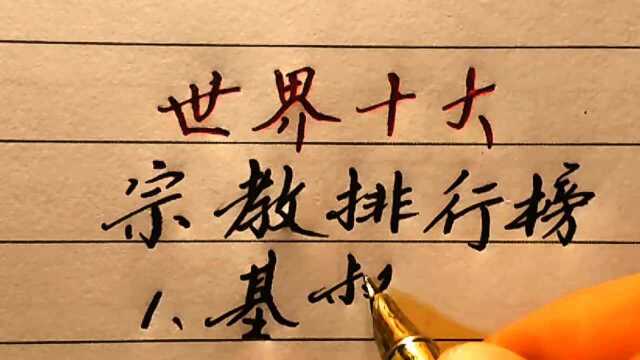 世界十大
宗教排行榜
1、基